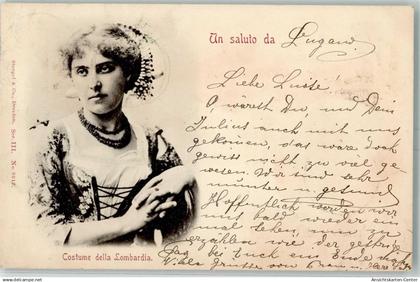 Un saluto da Lugano
Liebe Luise!
O wärest Du und Dein
Julius auch mit uns
gekommen, das wäre doch
gewiss nicht zu viel ge-
wesen. Wir sind sehr
munter u. gesund
Hoffentlich werden wir
uns bald wieder ein
mal sehen, um zu
erzählen wie der
bei Euch ein Ende
Viele Grüsse von
Stengel & Co., Dresden. Ser. III. N.
Costume della Lombardia.
www.ansichtskarten-center.de